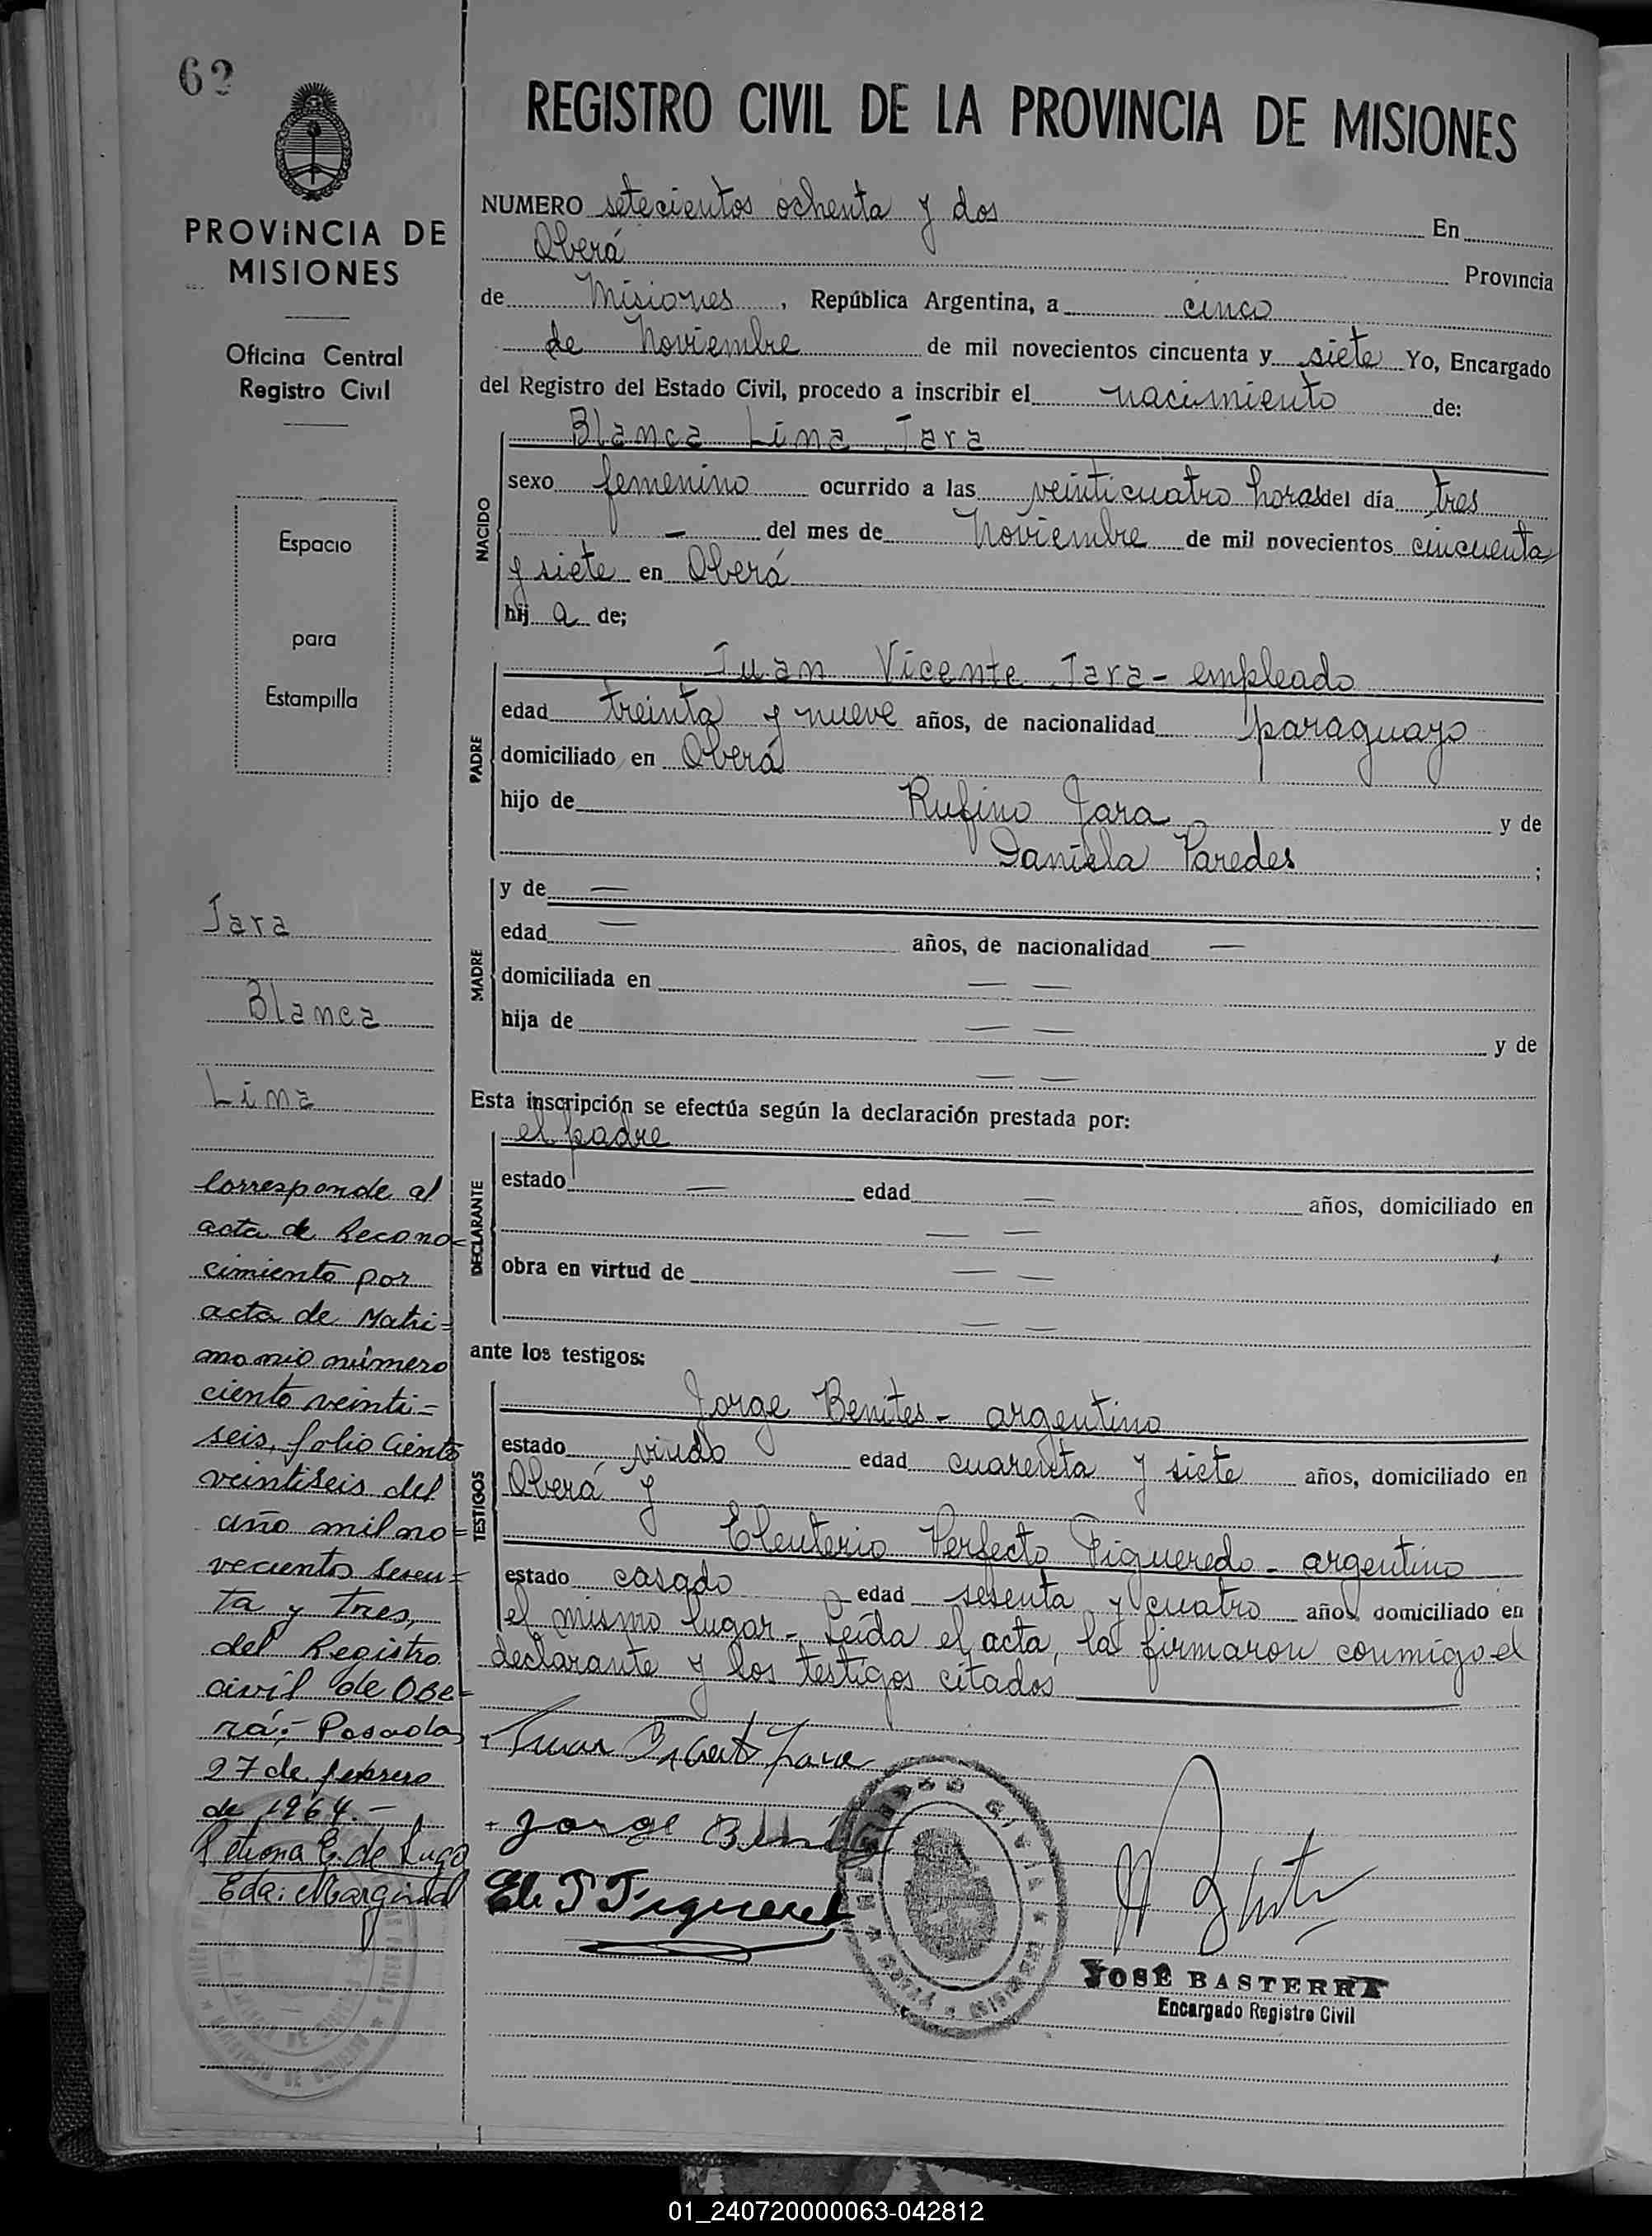 62
PROVINCIA DE
MISIONES
Oficina Central
Registro Civil
Espacio
para
Estampilla
Jara
Blanca
Lina
Corresponde al
acta de Recono=
cimiento por
acta de Matri=
monio número
ciento veinti=
seis, folio Ciento
veintiseis del
año mil no=
vecientos sesen=
ta y tres,
del Registro
civil de Obe=
rá.- Posadas
27 de febrero
de 1964.-
E. de Lugo
Eda: Marginal
REGISTRO CIVIL DE LA PROVINCIA DE MISIONES
NUMERO setecientos ochenta y dos En
Oberá Provincia
de Misiones, República Argentina, a cinco
de Noviembre de mil novecientos cincuenta y siete Yo, Encargado
del Registro del Estado Civil, procedo a inscribir el nacimiento de:
Blanca Lina Jara
NACIDO
sexo femenino ocurrido a las veinticuatro horas del día tres
— del mes de Noviembre de mil novecientos cincuenta
y siete en Oberá
hij a de;
PADRE
Juan Vicente Jara - empleado
edad treinta y nueve años, de nacionalidad paraguayo
domiciliado en Oberá
hijo de Rufino Jara y de
Daniela Paredes ;
MADRE
y de —
edad — años, de nacionalidad —
domiciliada en — —
hija de — — y de
— —
Esta inscripción se efectúa según la declaración prestada por:
DECLARANTE
el padre
estado — edad — años, domiciliado en
— —
obra en virtud de — —
— —
ante los testigos:
TESTIGOS
Jorge Benites - argentino
estado viudo edad cuarenta y siete años, domiciliado en
Oberá y
Eleuterio Perfecto Figueredo - argentino
estado casado edad sesenta y cuatro años, domiciliado en
el mismo lugar - Leída el acta, la firmaron conmigo el
declarante y los testigos citados
Juan Vicente Jara
Jorge Benites
Ele P Figueredo
JOSÉ BASTERRA
Encargado Registro Civil
01_240720000063-042812